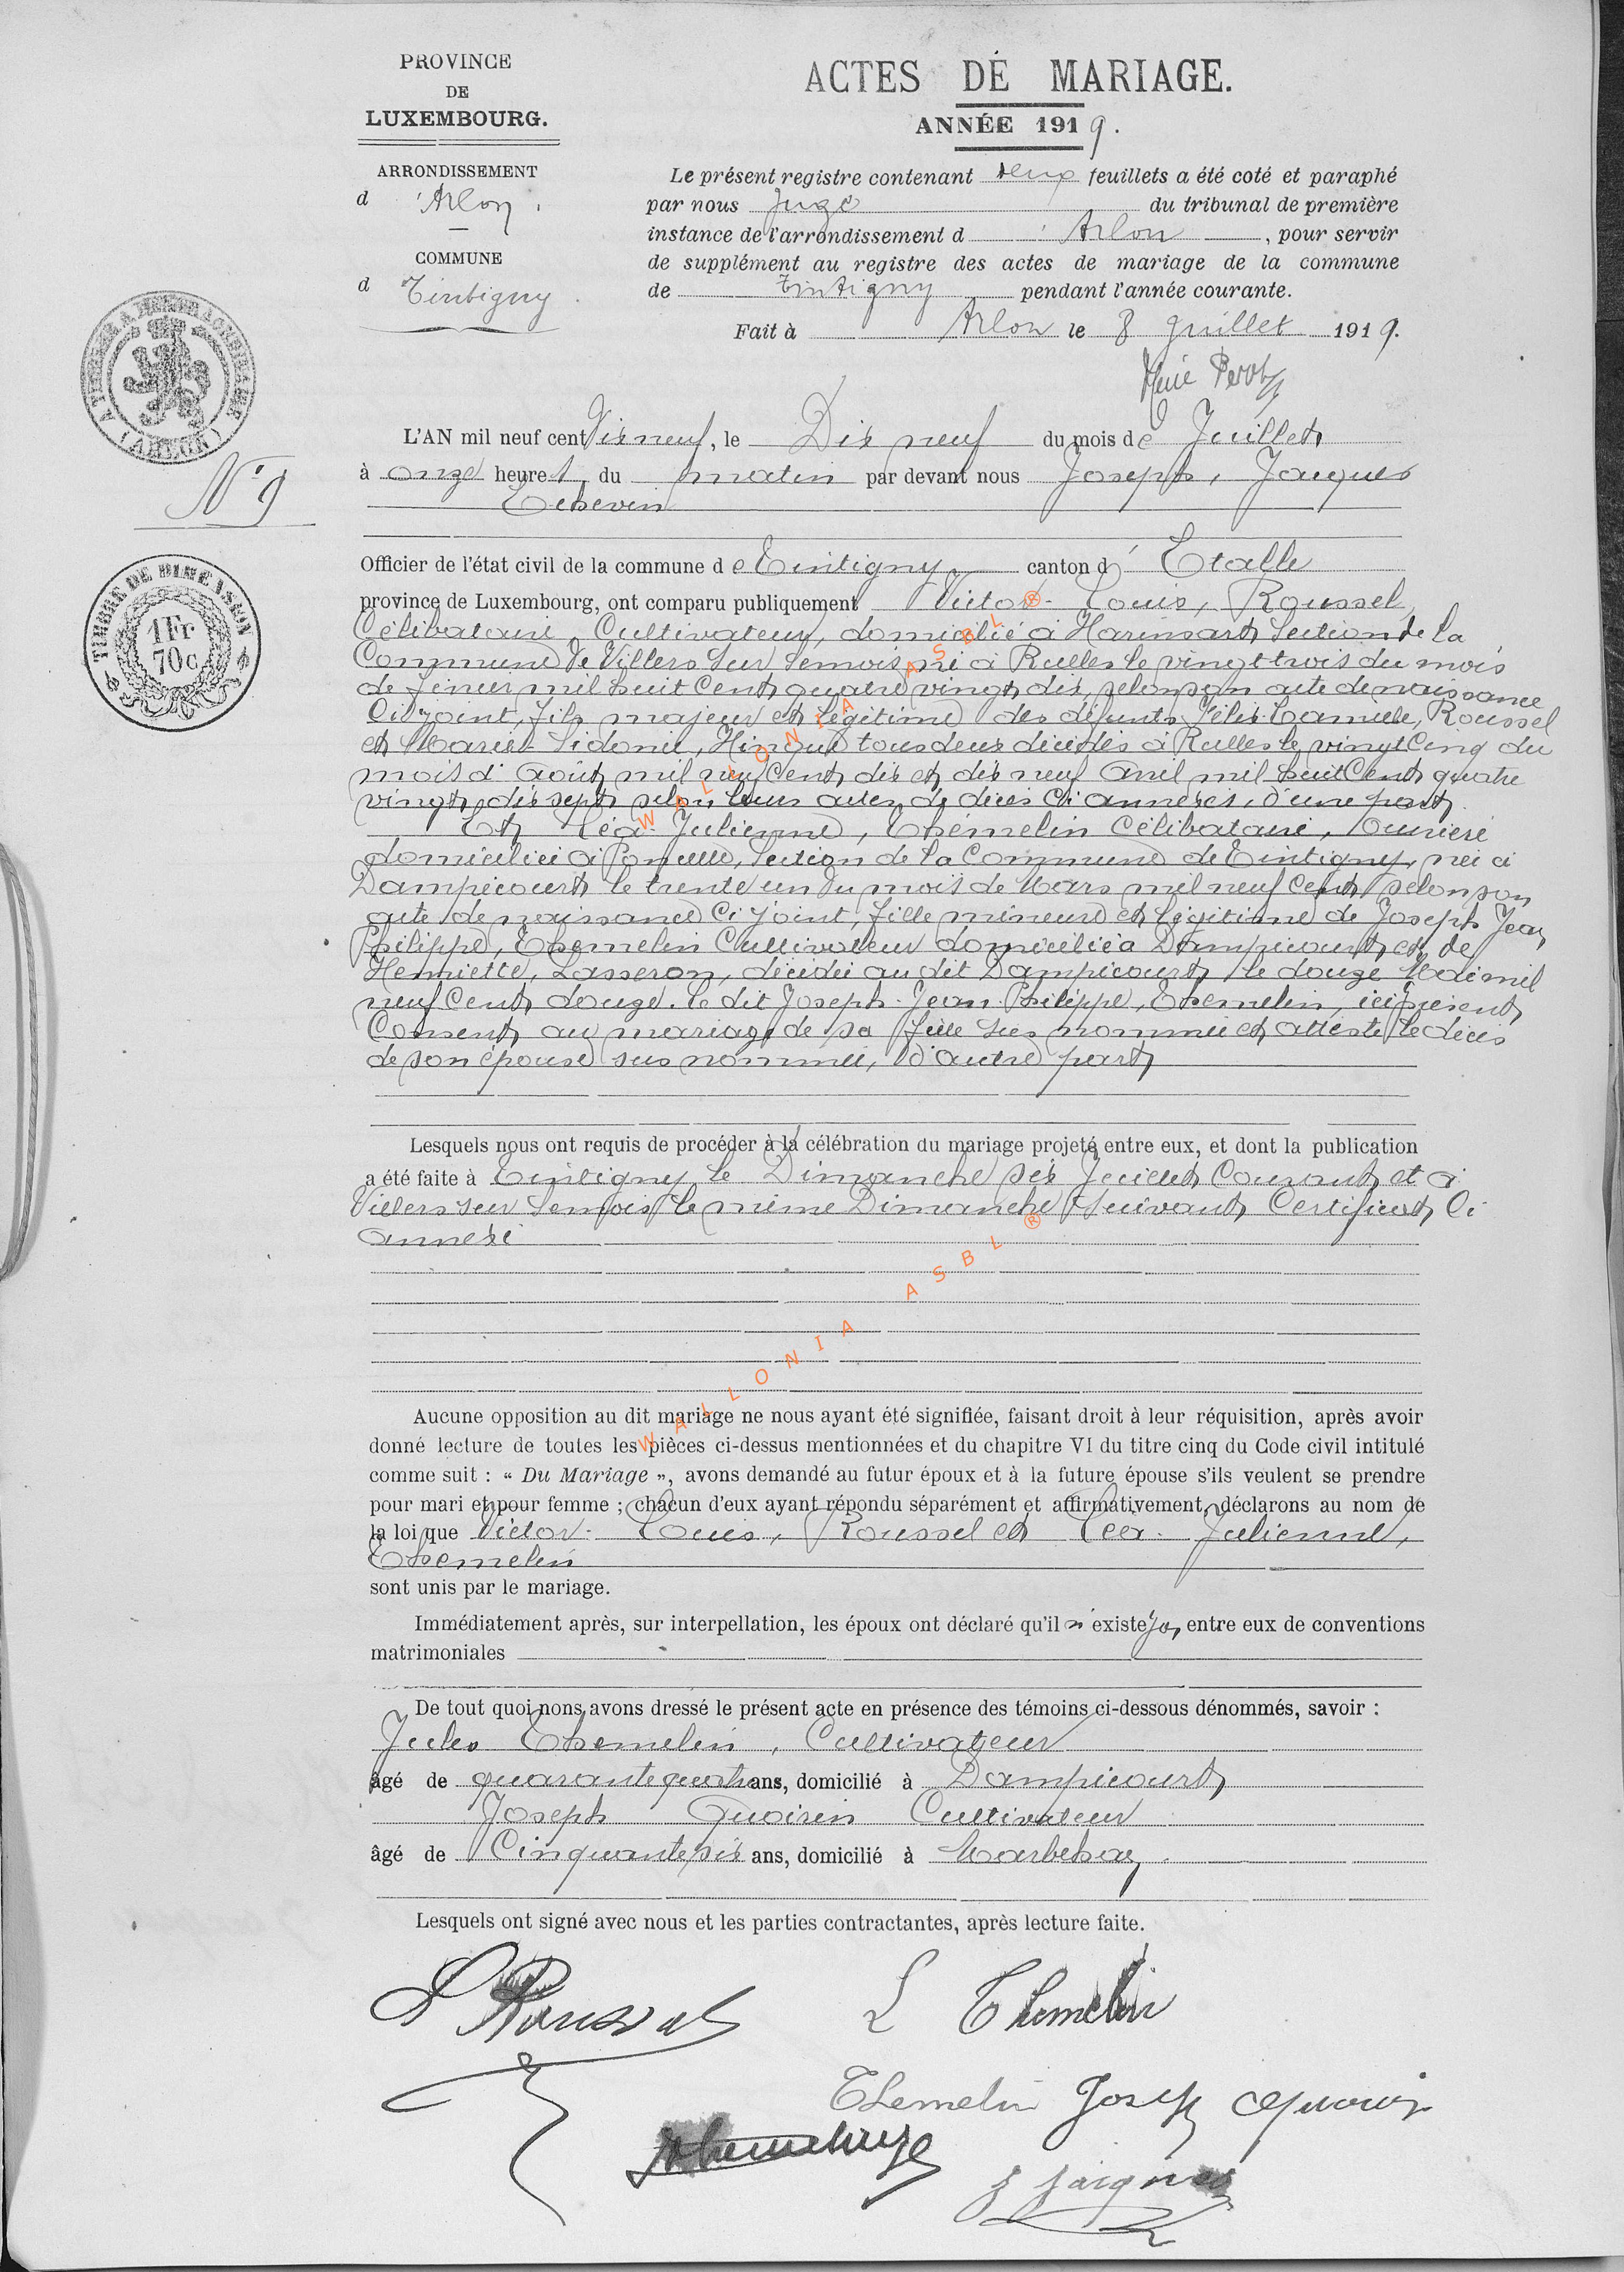 PROVINCE
DE
LUXEMBOURG.
ARRONDISSEMENT
d'Arlon.
COMMUNE
d Tintigny.
TIMBRE DE DIMENSION
1 Fr
70 c
N° 9
ACTES DE MARIAGE.
ANNÉE 1919.
Le présent registre contenant deux feuillets a été coté et paraphé
par nous Juge du tribunal de première
instance de l'arrondissement d'Arlon, pour servir
de supplément au registre des actes de mariage de la commune
de Tintigny pendant l'année courante.
Fait à Arlon le 8 Juillet 1919.
L'AN mil neuf cent dix neuf, le Dix neuf du mois de Juillet
à onze heures du matin par devant nous Joseph, Jacques
Echevin
Officier de l'état civil de la commune de Tintigny canton d'Etalle
province de Luxembourg, ont comparu publiquement Victor-Louis, Roussel
Célibataire, Cultivateur, domicilié à Harinsart Section de la
Commune de Villers sur Semois né à Rulles le vingt trois du mois
de fevrier mil huit cent quatre vingt dix, selon son acte de naissance
Ci-joint, fils majeur et légitime des défunts Roussel
et Marie-Sidonie, tous deux décédés à Rulles le vingt Cinq du
mois d'Août mil neuf cent dix et dix neuf Avril mil huit Cent quatre
vingt dix sept selon leurs actes de décès Ci annexés, d'une part.
Et Léa-Julienne, Themelin Célibataire, Ouvrière
domiciliée à Poncelle, Section de la Commune de Tintigny, née à
Dampicourt le trente un du mois de Mars mil neuf Cent selon son
acte de naissance Ci joint, fille mineure et légitime de Joseph Jean
Philippe, Themelin Cultivateur domicilié à Dampicourt et de
Henriette, Lasseron, décédée au dit Dampicourt le douze Mai mil
neuf Cent douze. Le dit Joseph-Jean-Philippe, Themelin, ici présent
Consent au mariage de sa fille sus nommée et atteste le décès
de son épouse sus nommée, d'autre part
Lesquels nous ont requis de procéder à la célébration du mariage projeté entre eux, et dont la publication
a été faite à Tintigny le Dimanche six Juillet Courant et à
Villers sur Semois le même Dimanche suivant Certificat Ci
annexé
Aucune opposition au dit mariage ne nous ayant été signifiée, faisant droit à leur réquisition, après avoir
donné lecture de toutes les pièces ci-dessus mentionnées et du chapitre VI du titre cinq du Code civil intitulé
comme suit : « Du Mariage », avons demandé au futur époux et à la future épouse s'ils veulent se prendre
pour mari et pour femme ; chacun d'eux ayant répondu séparément et affirmativement, déclarons au nom de
la loi que Victor-Louis, Roussel et Léa-Julienne,
Themelin
sont unis par le mariage.
Immédiatement après, sur interpellation, les époux ont déclaré qu'il n'existe pas entre eux de conventions
matrimoniales
De tout quoi nous avons dressé le présent acte en présence des témoins ci-dessous dénommés, savoir :
Jules Themelin, Cultivateur
âgé de quarante quatre ans, domicilié à Dampicourt
Joseph Quoirin Cultivateur
âgé de Cinquante six ans, domicilié à Marbehay.
Lesquels ont signé avec nous et les parties contractantes, après lecture faite.
Roussel L Themelin
Themelin Joseph Quoirin
J Jacques
WALLONIA ASBL ®
WALLONIA ASBL ®